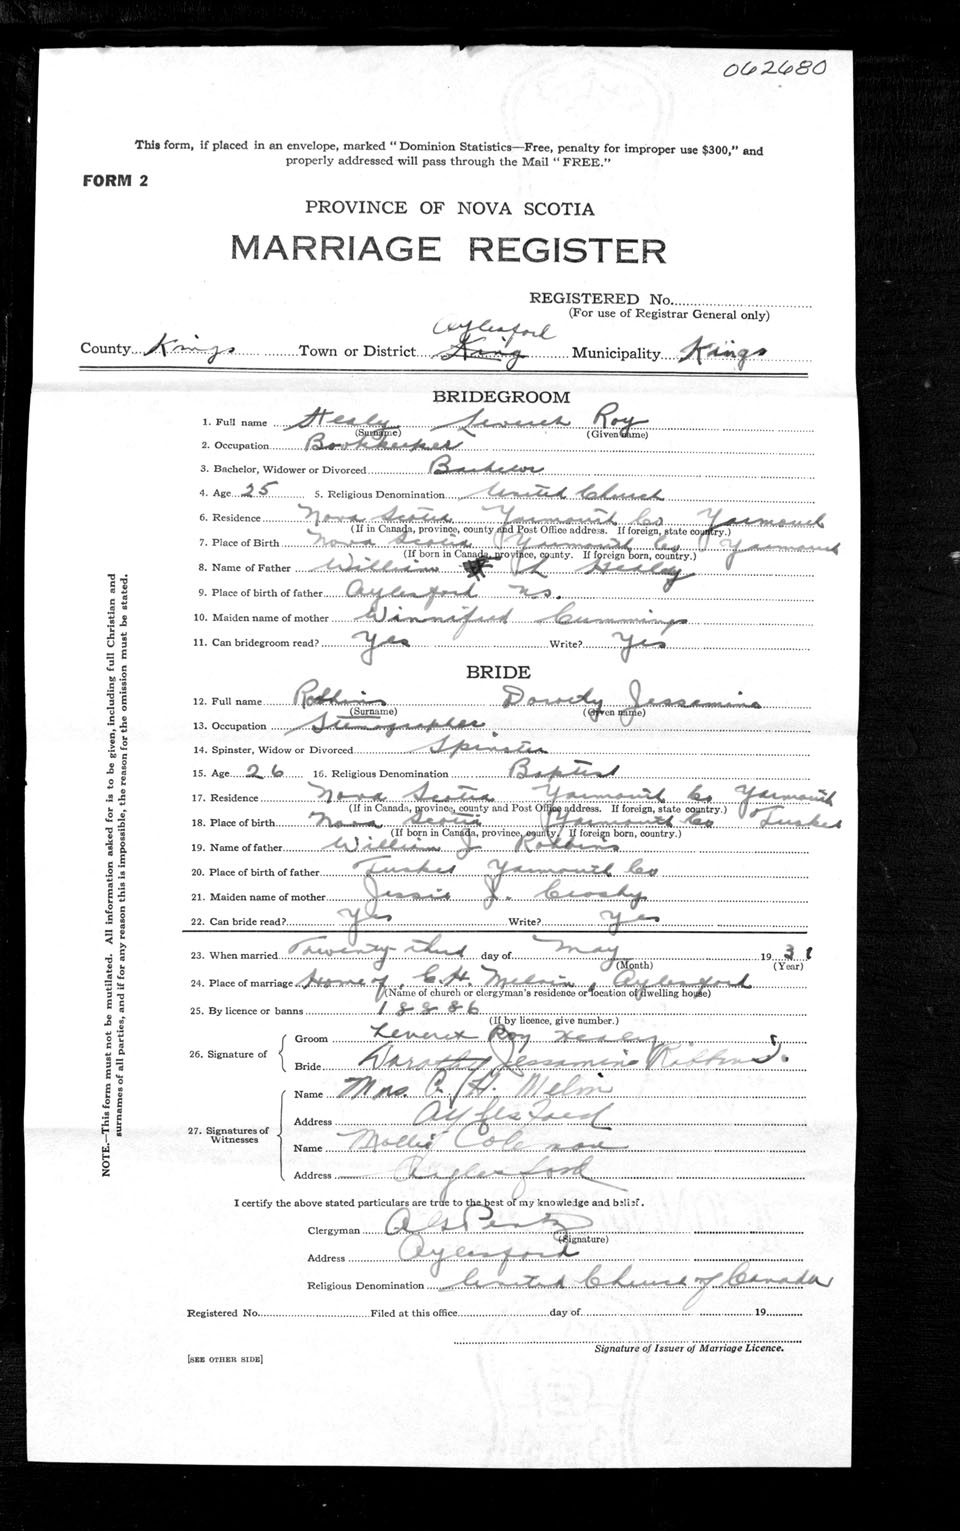 062680
This form, if placed in an envelope, marked "Dominion Statistics—Free, penalty for improper use $300," and
properly addressed will pass through the Mail "FREE."
FORM 2
PROVINCE OF NOVA SCOTIA
MARRIAGE REGISTER
REGISTERED No.
(For use of Registrar General only)
Aylesford
County Kings Town or District King Municipality Kings
BRIDEGROOM
1. Full name Healy Roy
(Surname) (Given name)
2. Occupation Bookkeeper
3. Bachelor, Widower or Divorced Bachelor
4. Age 25 5. Religious Denomination United Church
6. Residence Nova Scotia Yarmouth Co Yarmouth
(If in Canada, province, county and Post Office address. If foreign, state country.)
7. Place of Birth Nova Scotia Yarmouth Co Yarmouth
(If born in Canada, province, county. If foreign born, country.)
8. Name of Father William Healy
9. Place of birth of father Aylesford N.S.
10. Maiden name of mother Winnifred Cummings
11. Can bridegroom read? Yes Write? Yes
BRIDE
12. Full name Robbins Doroty Jessamine
(Surname) (Given name)
13. Occupation Stenographer
14. Spinster, Widow or Divorced Spinster
15. Age 26 16. Religious Denomination Baptist
17. Residence Nova Scotia Yarmouth Co Yarmouth
(If in Canada, province, county and Post Office address. If foreign, state country.)
18. Place of birth Nova Scotia Yarmouth Co Tusket
(If born in Canada, province, county. If foreign born, country.)
19. Name of father William J Robbins
20. Place of birth of father Tusket Yarmouth Co
21. Maiden name of mother Jessie J. Crosby
22. Can bride read? Yes Write? Yes
23. When married Twenty-third day of May 1931
(Month) (Year)
24. Place of marriage Home of C. H. Melvin, Aylesford
(Name of church or clergyman's residence or location of dwelling house)
25. By licence or banns 18886
(If by licence, give number.)
26. Signature of
Groom Leverett Roy Healy
Bride Dorothy Jessamine Robbins.
27. Signatures of Witnesses
Name Mrs. C. H. Melvin
Address Aylesford
Name Mollie Coleman
Address Aylesford
I certify the above stated particulars are true to the best of my knowledge and belief.
Clergyman
(Signature)
Address Aylesford
Religious Denomination United Church of Canada
Registered No. Filed at this office day of 19
Signature of Issuer of Marriage Licence.
[SEE OTHER SIDE]
NOTE.—This form must not be mutilated. All information asked for is to be given, including full Christian and
surnames of all parties, and if for any reason this is impossible, the reason for the omission must be stated.